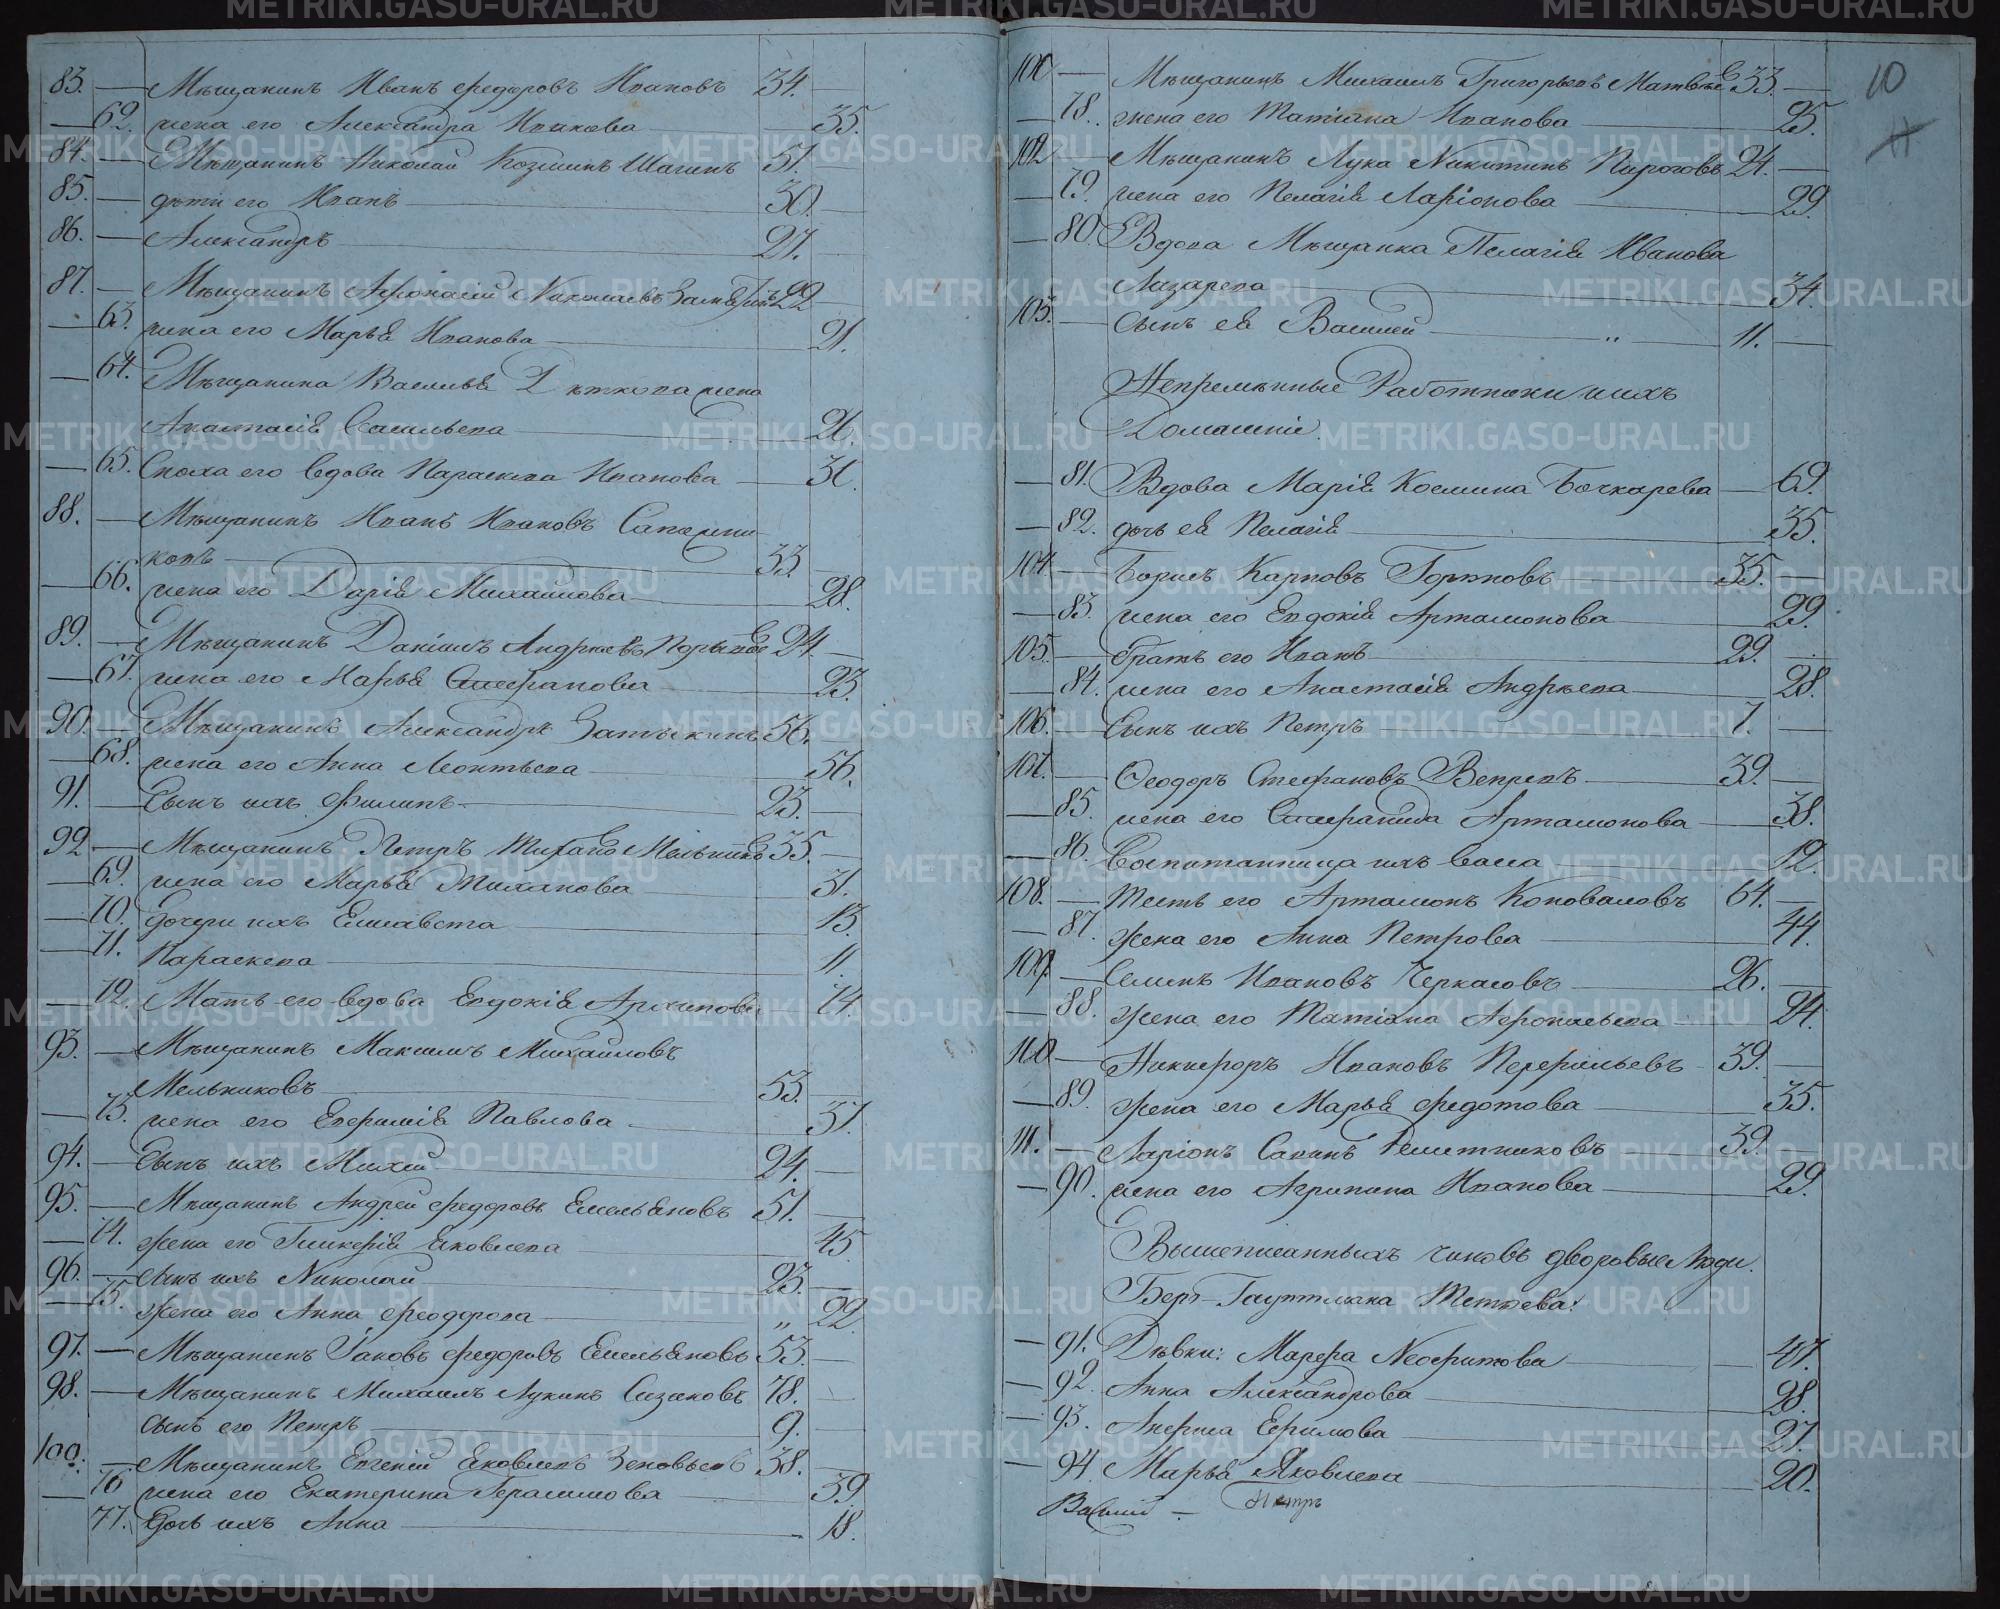 83. — Мѣщанинъ Иванъ Ѳедоровъ Ивановъ 34. —
— 62. жена его Александра Иванова — 35.
84. — Мѣщанинъ Николай Козминъ Шагинъ 57. —
85. — дѣти его Иванъ 30. —
86. — Александръ 27. —
87. — Мѣщанинъ Афонасій Николаевъ 22 —
— 63. жена его Марья Иванова — 21.
— 64. Мѣщанина Василья Дѣткова жена
Анастасія Савельева — 26.
— 65. Сноха его вдова Параскева Иванова — 31.
88. — Мѣщанинъ Иванъ Ивановъ Сапожни
ковъ 33. —
— 66. жена его Дарія Михайлова — 28.
89. — Мѣщанинъ Даніилъ Андреевъ 24. —
— 67. жена его Марья Стефанова — 23.
90. — Мѣщанинъ Александръ Затыкинъ 56. —
— 68. жена его Анна Леонтьева — 56.
91. — Сынъ ихъ Филипъ 23. —
92 — Мѣщанинъ Петръ Мельников 35. —
— 69. жена его Марья Тиханова — 31.
— 70. дочери ихъ Елисавета — 13.
— 71. Параскева — 11.
— 72. Мать его вдова Евдокія Архипова 74.
93. — Мѣщанинъ Максимъ Михайловъ
Мельниковъ 53. —
— 73. жена его Евфимія Павлова — 37.
94. — Сынъ ихъ Михей 24. —
95. — Мѣщанинъ Андрей Ѳедоровъ Емельяновъ 51. —
— 74. жена его Гликерія Яковлева — 45
96. — Сынъ ихъ Николай 23. —
— 75. жена его Анна Феодорова „ 22.
97. — Мѣщанинъ Іаковъ Ѳедоровъ Емельяновъ 53. —
98. — Мѣщанинъ Михаилъ Лукинъ Сазановъ 78. —
сынъ его Петръ 9. —
100. — Мѣщанинъ Евгеній Яковлевъ Зеновьевъ 38. —
— 76 жена его Екатерина Герасимова — 39.
77. дочь ихъ Анна — 18.
10
11
101 — Мѣщанинъ Михаилъ Григорьевъ Матвѣевъ 33. —
— 78. жена его Татіана Иванова — 25.
102 — Мѣщанинъ Лука Никитинъ Пироговъ 24. —
— 79. жена его Пелагія Ларіонова — 29.
— 80. Вдова Мѣщанка Пелагія Иванова
Лазарева — 34.
103. — сынъ ея Василей „ 11. —
Непремѣнные Работники и ихъ
Домашніе.
— 81. Вдова Марія Космина Бочкарева — 69.
— 82. дочь ея Пелагія — 35.
104 — Борисъ Карповъ Гортновъ 35. —
— 83. жена его Евдокія Артамонова — 29.
105. — братъ его Иванъ 29. —
— 84. жена его Анастасія Андрѣева — 28.
106. — Сынъ ихъ Петръ 7. —
107. — Ѳеодоръ Стефановъ Вепревъ 39. —
— 85. жена его Стефанида Артамонова — 38.
— 86. Воспитанница ихъ Васса — 12.
108. — Тесть его Артамонъ Коноваловъ 64. —
— 87. жена его Анна Петрова — 44.
109. — Семенъ Ивановъ Черкасовъ 26. —
— 88. жена его Татіана Афонасьева — 24.
110 — Никифоръ Ивановъ Перфильевъ 39. —
— 89. жена его Марья Ѳедотова — 35.
111. — Ларіонъ Савинъ Решетниковъ 39. —
— 90. жена его Агрипина Иванова — 29.
Вышеписанныхъ чиновъ дворовые люди.
Берг-Гауптмана Тетяева:
— 91. Дѣвки: Марфа Неофитова — 47.
— 92. Анна Александрова — 28.
— 93. Анфиса Ефимова — 27.
— 94. Марья Яковлева — 20.
Василій — Петръ